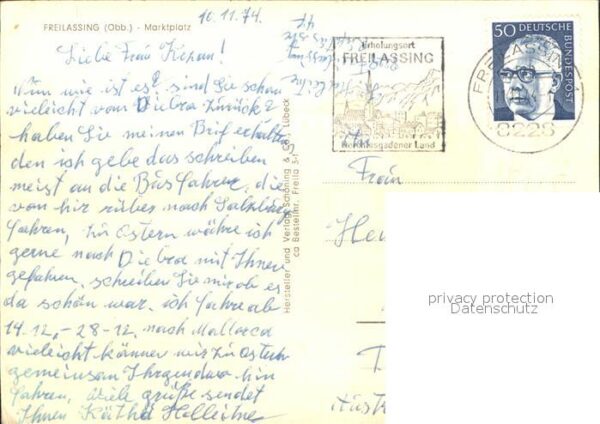 FREILASSING (Obb.) - Marktplatz
10.11.74.
Liebe Frau
Nun wie ist es? sind Sie schon
vieleicht vom Djerba zurück?
haben Sie meinen Brif erhalten
den ich gebe das schreiben
meist an die Busfahrer, die
von hir rüber nach Salzburg
fahren, zu Ostern währe ich
gerne nach Djerba mit Ihnen
gefahren, schreiben Sie mir ob es
da schön war. ich fahre ab
14.12.-28-12. nach Mallorca
vieleicht können wir zu Ostern
gemeinsam Ihrgendwo hin
fahren, Viele grüße sendet
Ihnen Käthe
Hersteller und Verlag Schöning & Co., Lübeck
ca Bestellnr. Freila
Erholungsort
FREILASSING
Berchtesgadener Land
FREILASSING
8228
50 DEUTSCHE
BUNDESPOST
Frau
privacy protection
Datenschutz